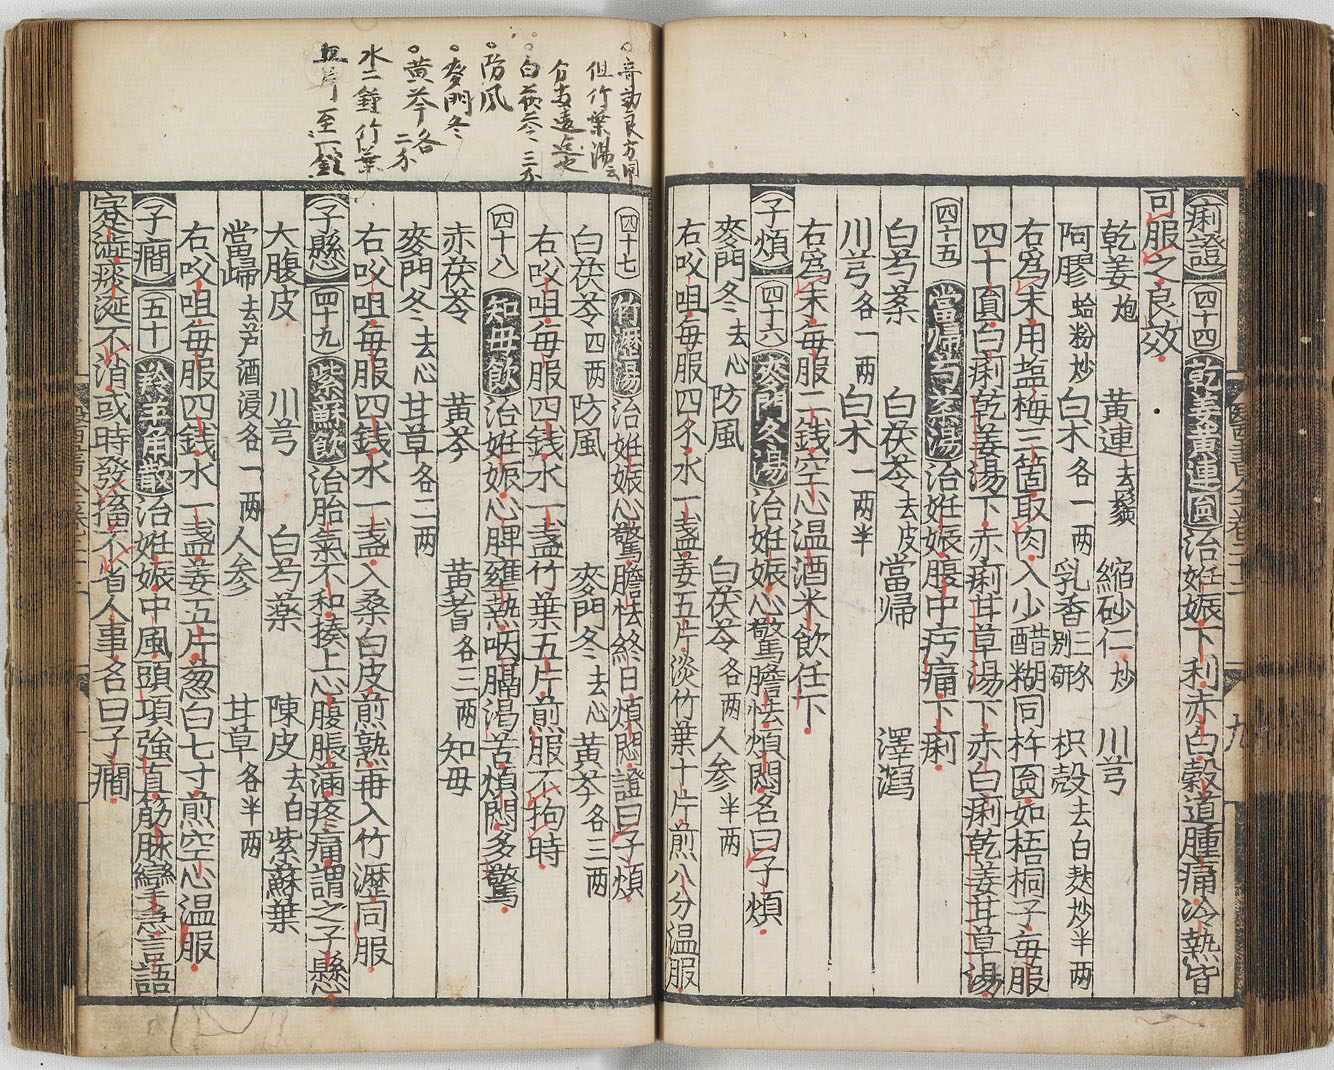 痢證 四十四 乾姜黄連圓 治姙娠下利赤白穀道腫痛冷熱皆
可服之良效
乾姜炮 黄連去鬚 縮砂仁炒 川芎
阿膠蛤粉炒 白木各一两 乳香三錢别研 枳殼去白麸炒半两
右爲末用塩梅三箇取肉入少醋糊同杵圓如梧桐子毎服
四十圓白痢乾姜湯下赤痢甘草湯下赤白痢乾姜甘草湯
四十五 當歸芍薬湯 治姙娠腹中㽲痛下痢
白芍藥 白茯苓去皮 當歸 澤瀉
川芎各一两 白木一两半
右爲末毎服二錢空心温酒米飲任下
子煩 四十六 麥門冬湯 治姙娠心驚膽怯煩悶名曰子煩
麥門冬去心 防風 白茯苓各一两 人参半两
右㕮咀毎服四錢水一盞姜五片淡竹葉十片煎八分温服
竒効良方同
但竹葉湯云
分両遠近也
白茯苓三分
防風
麥門冬
黄芩各二分
水二鐘竹葉
五片至一鐘
四十七 竹瀝湯 治姙娠心驚膽怯終日煩悶證曰子煩
白茯苓四两 防風 麥門冬去心 黄芩各三两
右㕮咀毎服四錢水一盞竹葉五片煎服不拘時
四十八 知毋飲 治姙娠心脾壅熱咽膈渇苦煩悶多驚
赤茯苓 黄芩 黄蓍各三两 知毋
麥門冬去心 甘草各二两
右㕮咀毎服四錢水一盞入桑白皮煎熟再入竹瀝同服
子懸 四十九 紫蘇飲 治胎氣不和揍上心腹脹滿疼痛謂之子懸
大腹皮 川芎 白芍藥 陳皮去白 紫蘇葉
當歸去芦酒浸各一两 人参 甘草各半两
右㕮咀毎服四錢水一盞姜五片葱白七寸煎空心温服
子癎 五十 羚羊角散 治姙娠中風頭項強直筋脉攣急言語
蹇澁痰涎不消或時發搐不省人事名曰子癎